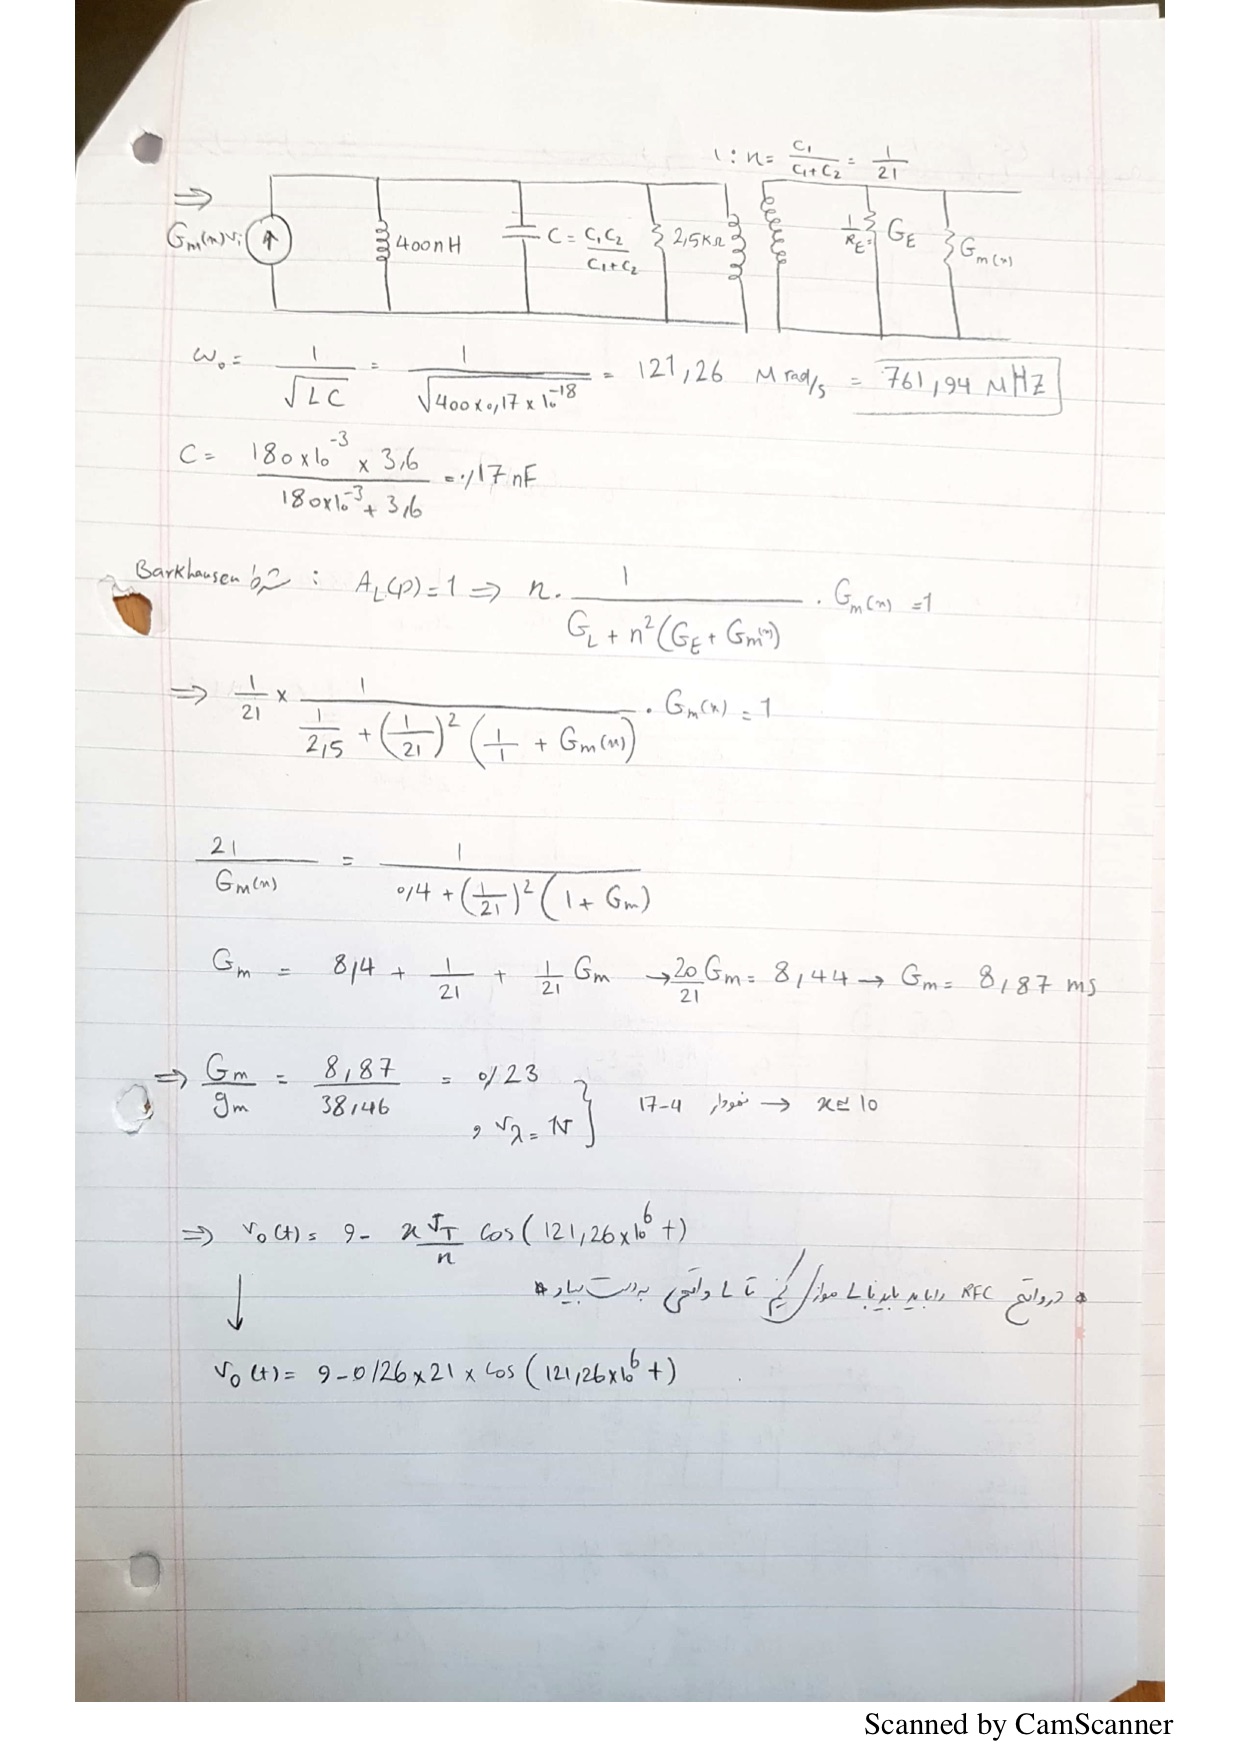 1 : n = C₁/(C₁+C₂) = 1/21
⇒
Gm(x)Vi 400nH C = C₁C₂/(C₁+C₂) 2,5KΩ 1/RE = GE Gm(x)
ω₀ = 1/√LC = 1/√(400×0,17×10⁻¹⁸) = 121,26 M rad/s = 761,94 MHZ
C = (180×10⁻³ × 3,6)/(180×10⁻³ + 3,6) = 0,17 nF
Barkhausen شرط : A_L(P) = 1 ⇒ n . 1/(G_L + n²(G_E + Gm(x))) . Gm(x) = 1
⇒ 1/21 × 1/(1/2,5 + (1/21)²(1/1 + Gm(x))) . Gm(x) = 1
21/Gm(x) = 1/(0,4 + (1/21)²(1 + Gm))
Gm = 8,4 + 1/21 + 1/21 Gm → 20/21 Gm = 8,44 → Gm = 8,87 ms
⇒ Gm/gm = 8,87/38,46 = 0,23
, Vλ = } نمودار 17-4 → x ≃ 10
⇒ Vo(t) = 9 - xV_T/n cos(121,26×10⁶ t)
* درواقع RFC را باید با L موازی کنیم تا L واقعی بدست بیاد *
↓
Vo(t) = 9 - 0,26×21× cos(121,26×10⁶ t)
Scanned by CamScanner